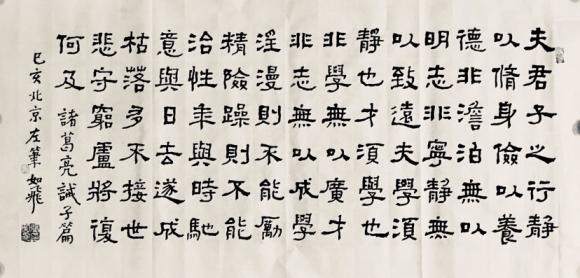 夫君子之行靜
以脩身儉以養
德非澹泊無以
明志非寧靜無
以致遠夫學須
靜也才須學也
非學無以廣才
非志無以成學
淫漫則不能勵
精險躁則不能
治性年與時馳
意與日去遂成
枯落多不接世
悲守窮廬將復
何及 諸葛亮誡子篇
己亥北京左筆如飛